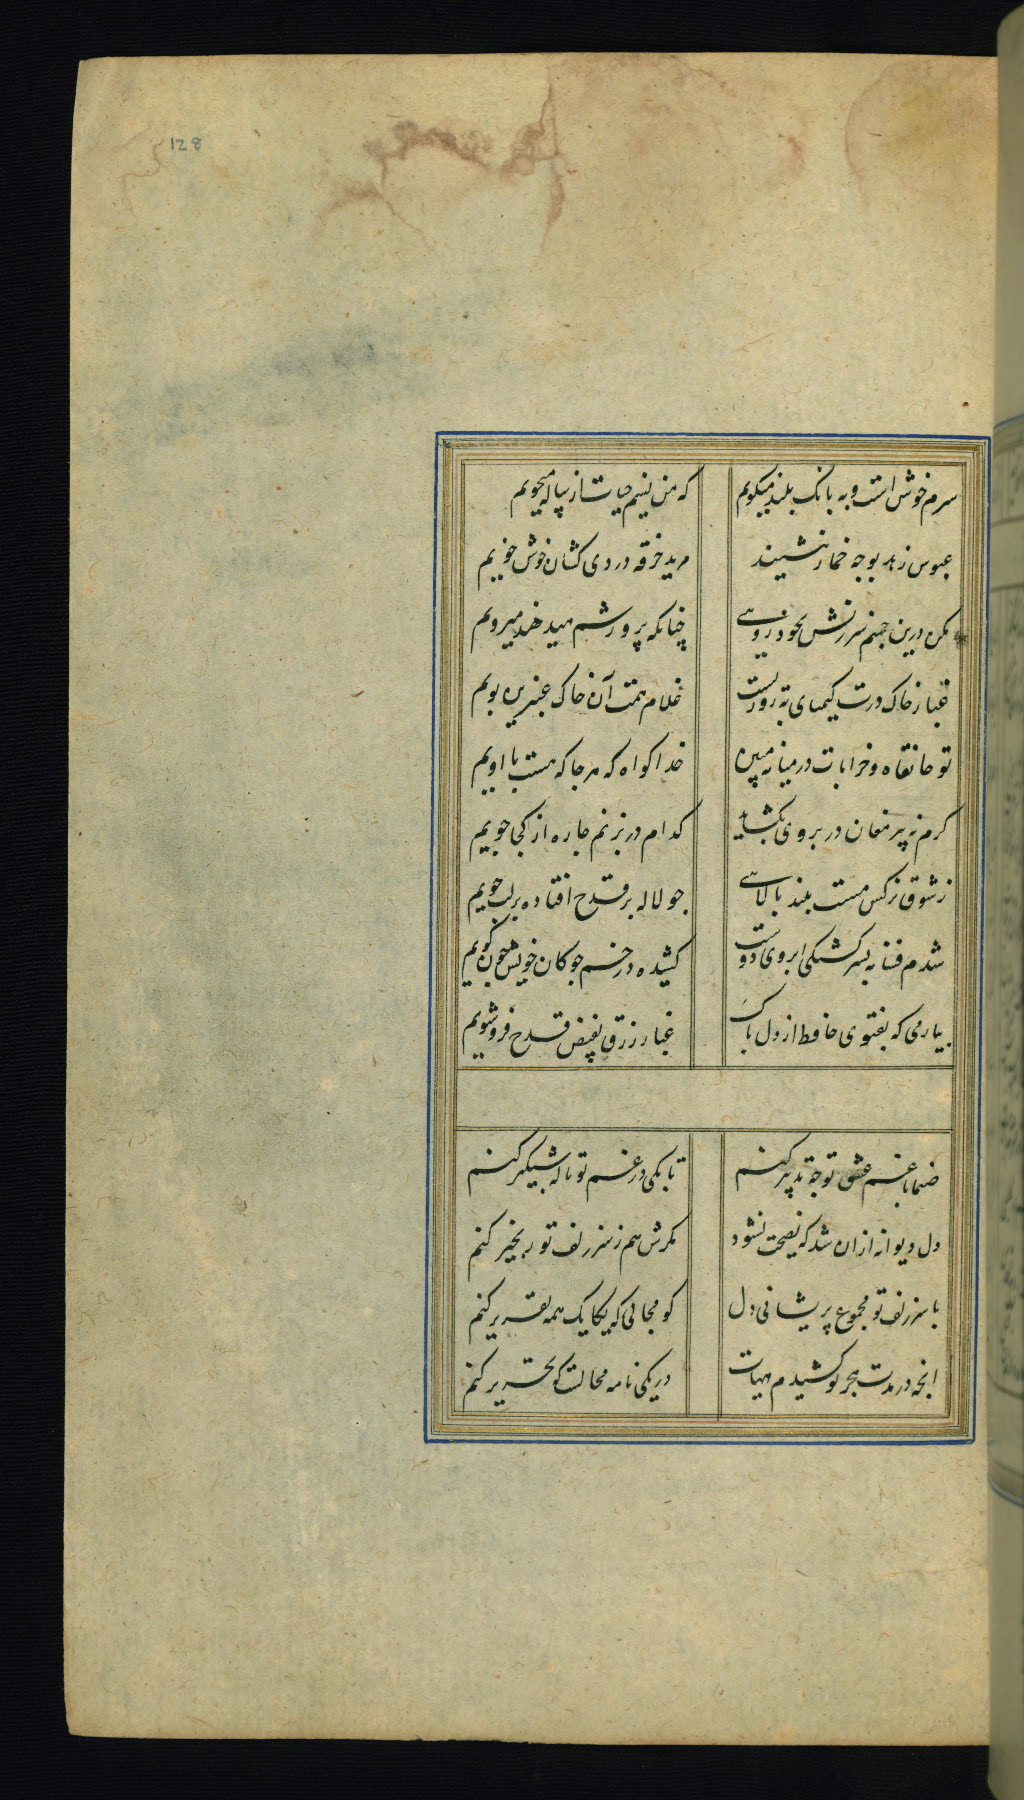 128
سرم خوش است و به بانک بلند میکویم که من نسیم حیات از پیاله میجویم
عبوس زهد بوجه خمار ننشیند مرید خرقه دردی کشان خوش خویم
مکن درین چمنم سرزنش بخود رویی چنانکه پرورشم میدهند میرویم
غبار خاک درت کیمیای به روزیست غلام همت آن خاک عنبرین بویم
تو خانقاه و خرابات در میانه مبین خدا کواه که هر جا که هست با اویم
کرم نه پیر مغان در بروی بکشاید کدام در بزنم چاره از کجا جویم
ز شوق نرکس مست بلند بالایی چو لاله بر قدح افتاده بر لب جویم
شدم فسانه بسرکشتکی ابروی دوست کشیده در خم چوکان خویش چون کویم
بیار می که بفتوی حافظ از دل پاک غبار زرق بفیض قدح فروشویم
صنما با غم عشق تو چه تدبیر کنم تا بکی در غم تو ناله شبکیر کنم
دل دیوانه از ان شد که نصیحت شنود مکرش هم ز سر زلف تو زنجیر کنم
با سر زلف تو مجموع پریشانی دل کو مجالی که یکایک همه تقریر کنم
انچه در مدت هجر تو کشیدم هیهات در یکی نامه محالست که تحریر کنم